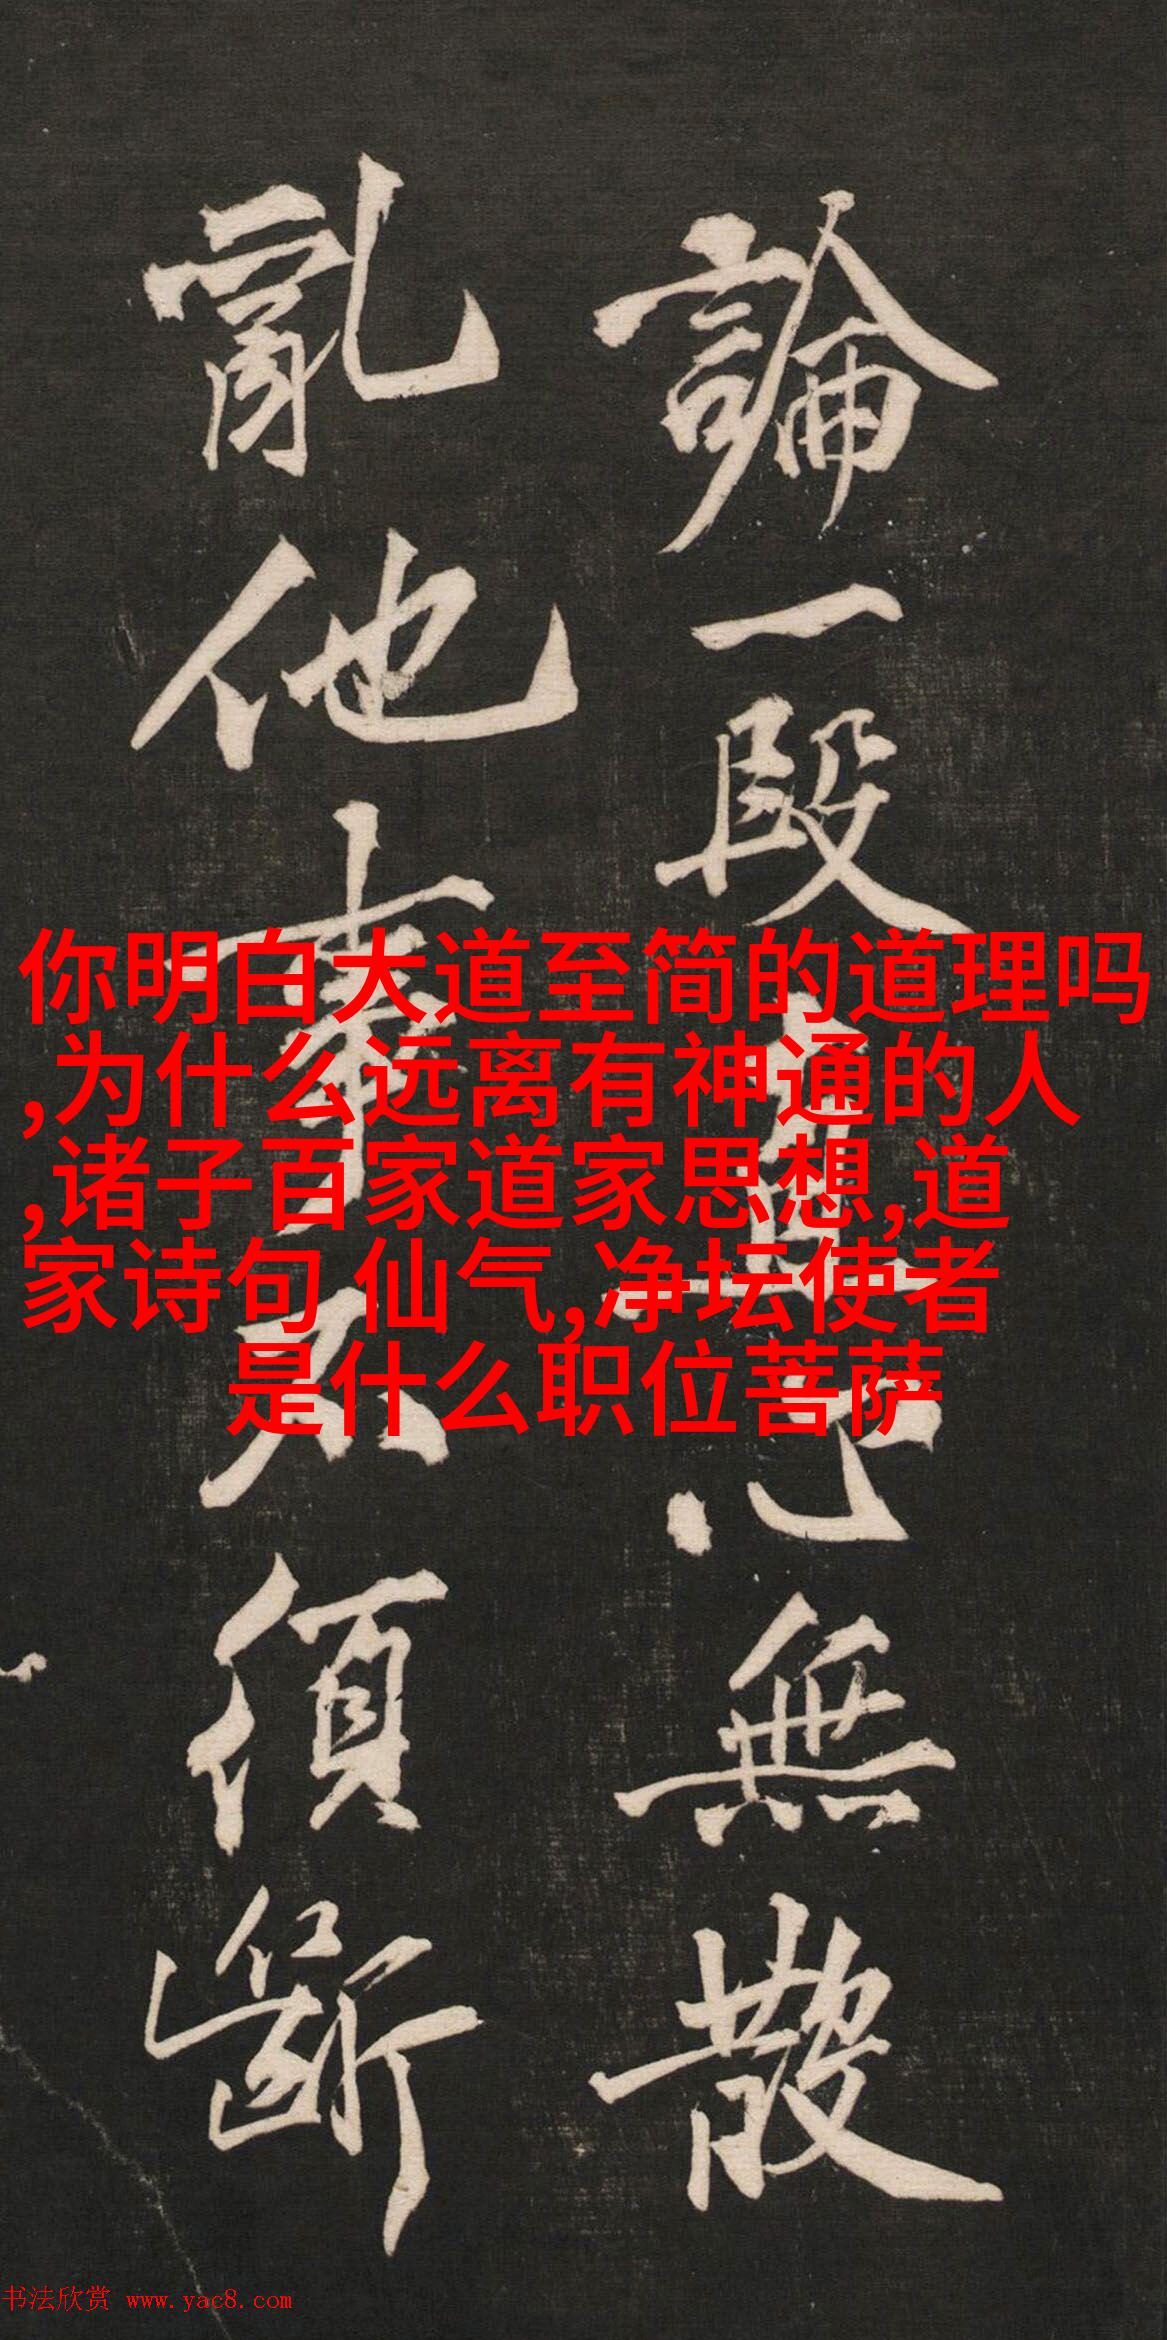 論一段真心無散
亂他事不須斷
你明白大道至简的道理吗
,为什么远离有神通的人
,诸子百家道家思想,道
家诗句 仙气,净坛使者
是什么职位菩萨
书法欣赏 www.yac8.com